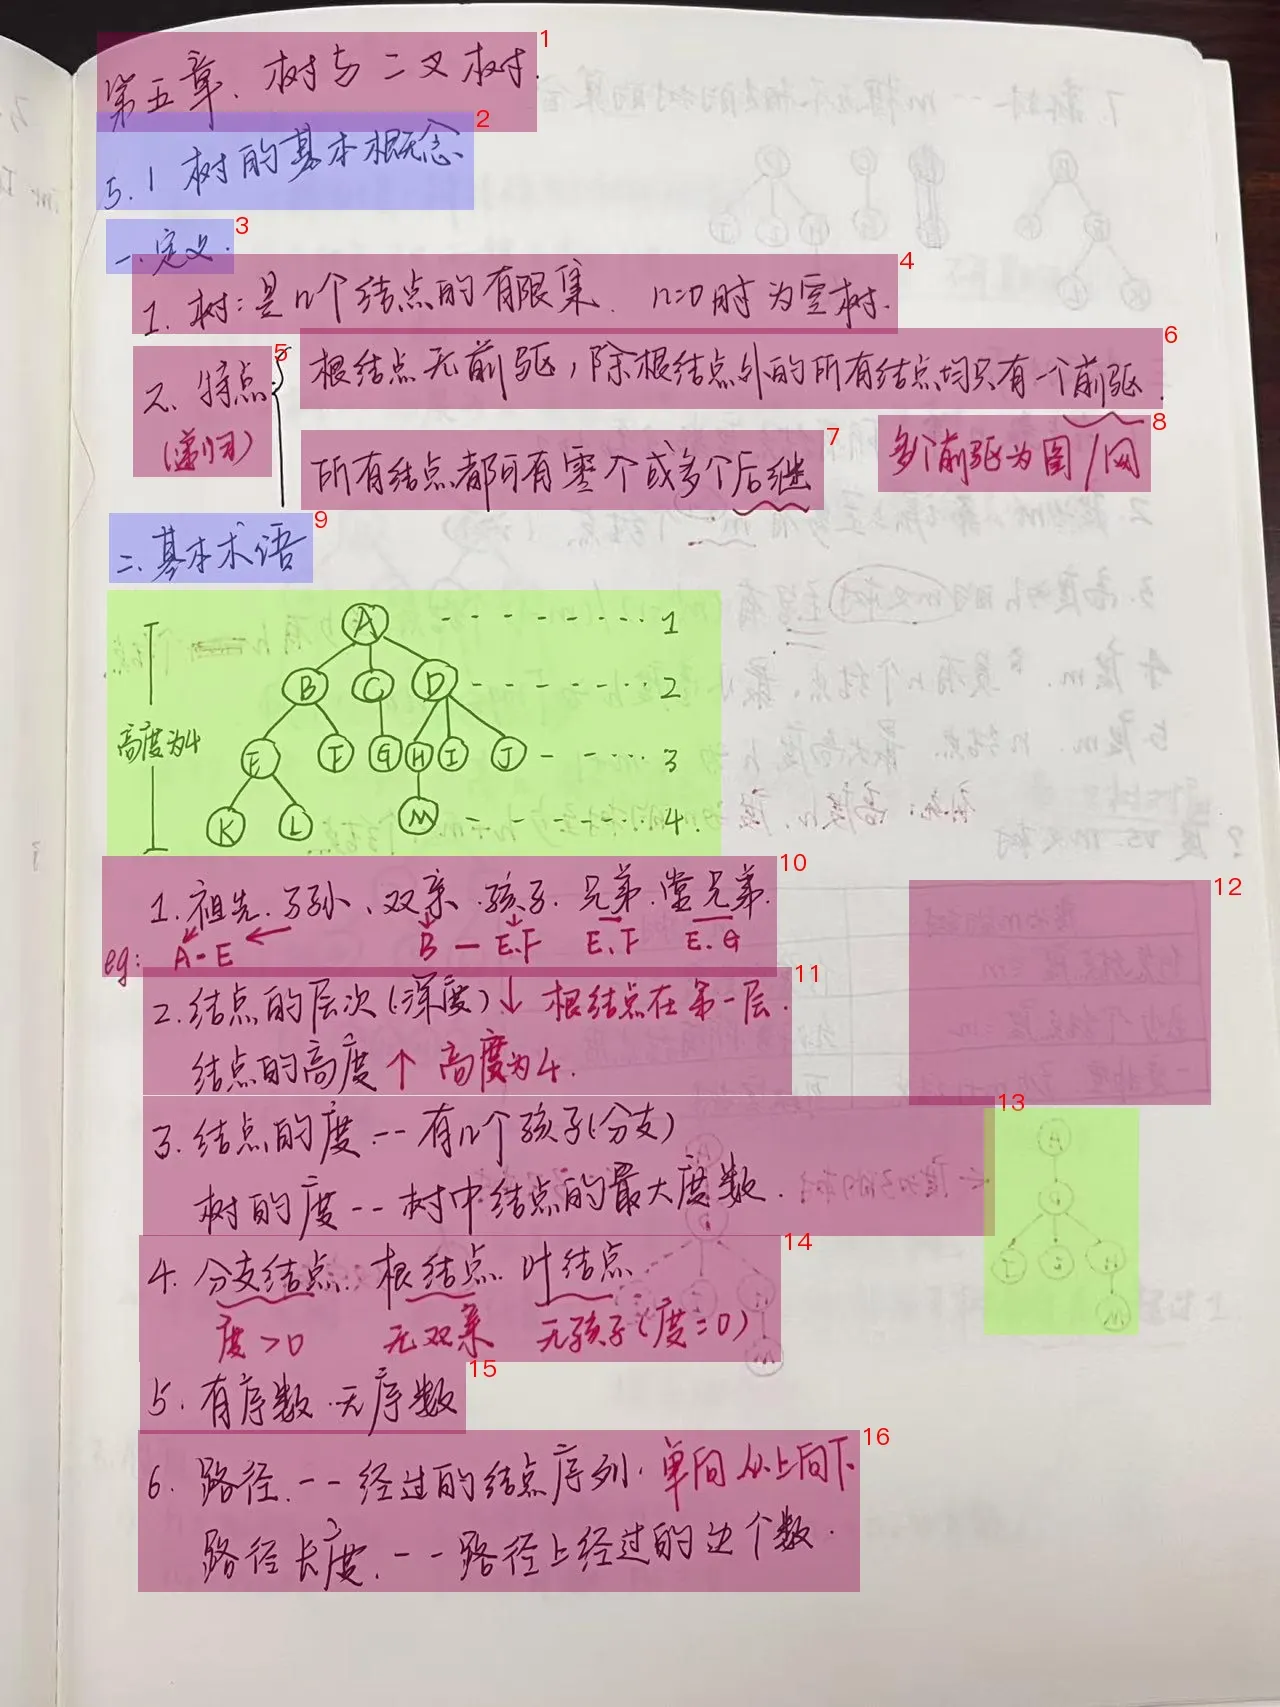 第五章、树与二叉树.
5.1 树的基本概念
一.定义.
1. 树:是n个结点的有限集. n=0时为空树.
2. 特点
(递归)
根结点无前驱,除根结点外的所有结点均只有一个前驱.
所有结点都可有零个或多个后继
多个前驱为图/网
二.基本术语
A 1
B C D 2
高度为4
E F G H I J 3
K L M 4
1. 祖先. 子孙、双亲.孩子. 兄弟.堂兄弟.
eg: A-E B—E.F E.F E.G
2.结点的层次(深度)↓ 根结点在第一层.
结点的高度↑ 高度为4.
3.结点的度--有几个孩子(分支)
树的度--树中结点的最大度数.
4. 分支结点. 根结点. 叶结点
度>0 无双亲 无孩子(度=0)
5. 有序数.无序数
6. 路径.--经过的结点序列,单向从上向下
路径长度.--路径上经过的边个数.
1
2
3
4
5
6
7
8
9
10
11
12
13
14
15
16